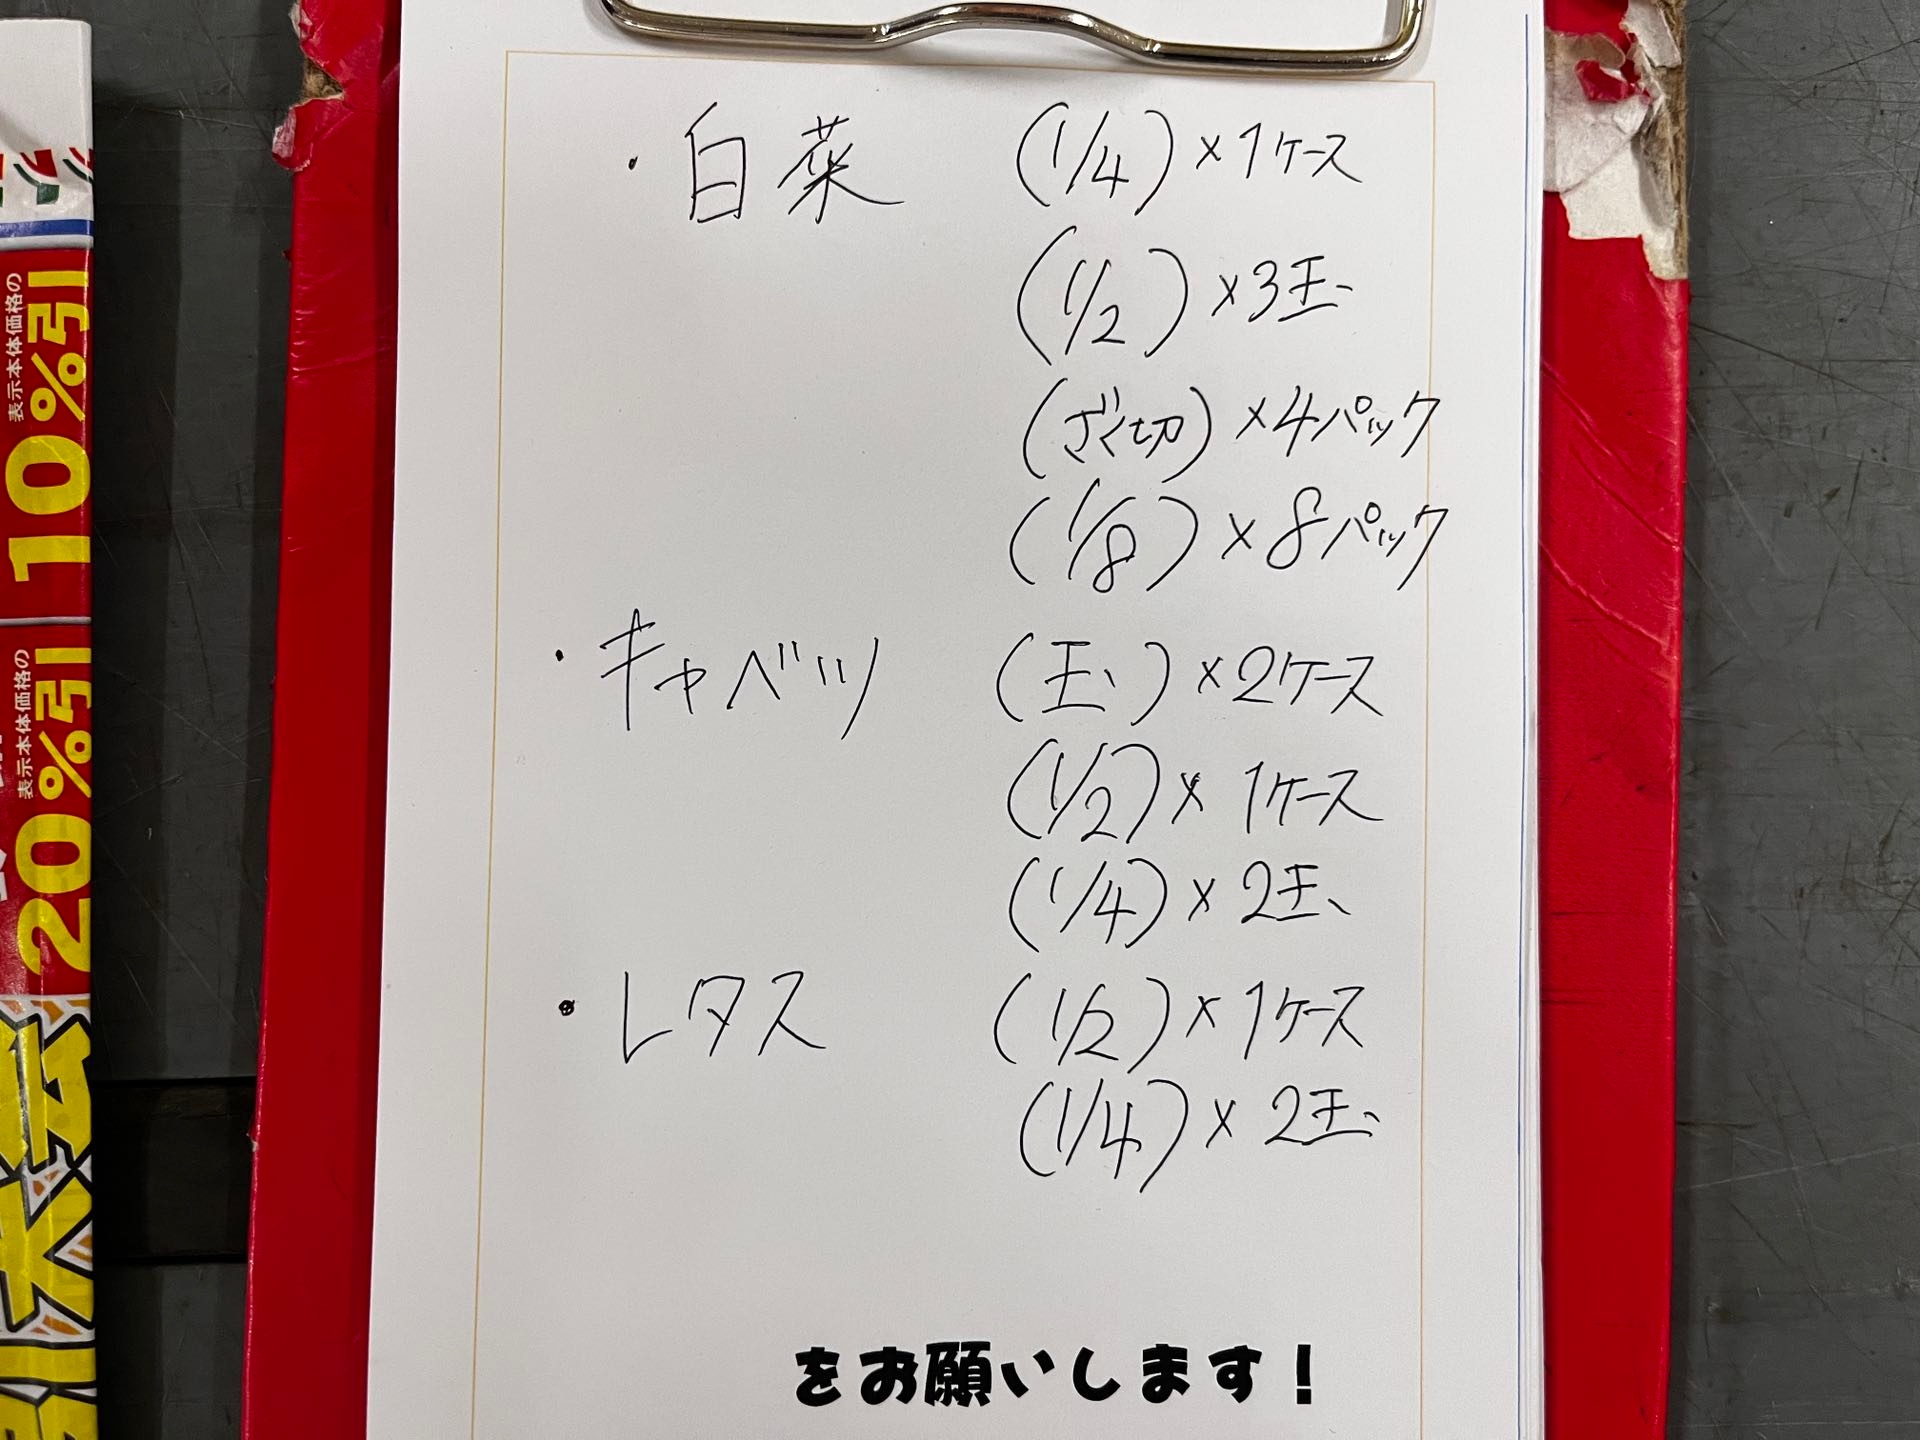 ・白菜 (1/4)×1ケース
(1/2)×3玉
(ざく切)×4パック
(1/8)×8パック
・キャベツ (玉)×2ケース
(1/2)×1ケース
(1/4)×2玉
・レタス (1/2)×1ケース
(1/4)×2玉
をお願いします!
表示本体価格の
10%引
表示本体価格の
20%引